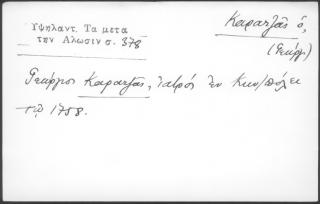 Υψηλαντ. Τα μετα
την Αλωσιν σ. 378
Καρατζᾶς ὁ,
(Γεώργ.)
Γεώργιος Καρατζᾶς, ἰατρός ἐν Κων/πόλει
τῷ 1758.